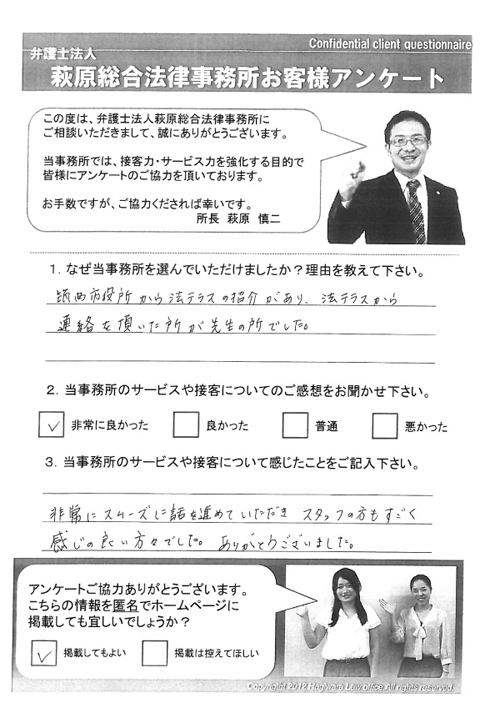 Confidential client questionnaire
弁護士法人
萩原総合法律事務所お客様アンケート
この度は、弁護士法人萩原総合法律事務所に
ご相談いただきまして、誠にありがとうございます。
当事務所では、接客力・サービス力を強化する目的で
皆様にアンケートのご協力を頂いております。
お手数ですが、ご協力くだされば幸いです。
所長 萩原 慎二
1. なぜ当事務所を選んでいただけましたか？理由を教えて下さい。
筑西市役所から法テラスの紹介があり、法テラスから
連絡を頂いた所が先生の所でした。
2. 当事務所のサービスや接客についてのご感想をお聞かせ下さい。
非常に良かった 良かった 普通 悪かった
3. 当事務所のサービスや接客について感じたことをご記入下さい。
非常にスムーズに話を進めていただき スタッフの方もすごく
感じの良い方々でした。ありがとうございました。
アンケートご協力ありがとうございます。
こちらの情報を匿名でホームページに
掲載しても宜しいでしょうか？
掲載してもよい 掲載は控えてほしい
Copyright 2012 Hagiwara Law office All rights reserved